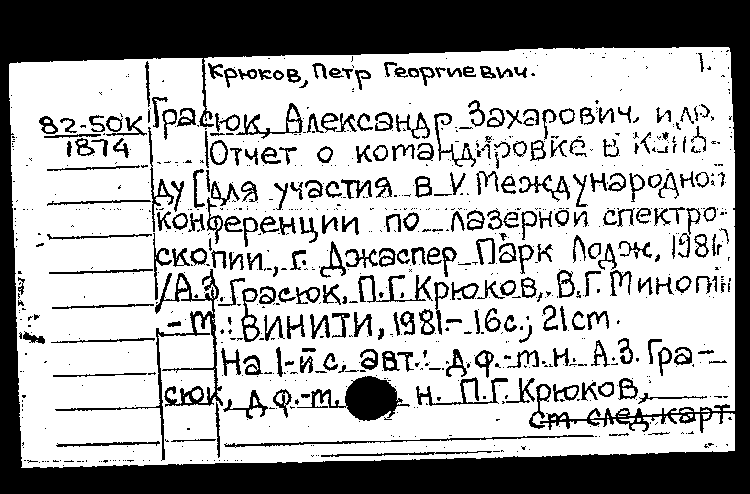 Крюков, Петр Георгиевич. 1.
82-50К Грасюк, Александр Захарович. и др.
1874 Отчет о командировке в Кана-
ду [для участия в V Международной
конференции по лазерной спектро-
скопии, г. Джаспер Парк Лодж, 1981г]
/А.З.Грасюк, П.Г.Крюков, В.Г.Миногин
- М.: ВИНИТИ, 1981.- 16с.; 21см.
На 1-й с. авт.: д.ф.-м.н. А.З.Гра-
сюк, д.ф.-м. н. П.Г.Крюков,
см. след. карт.